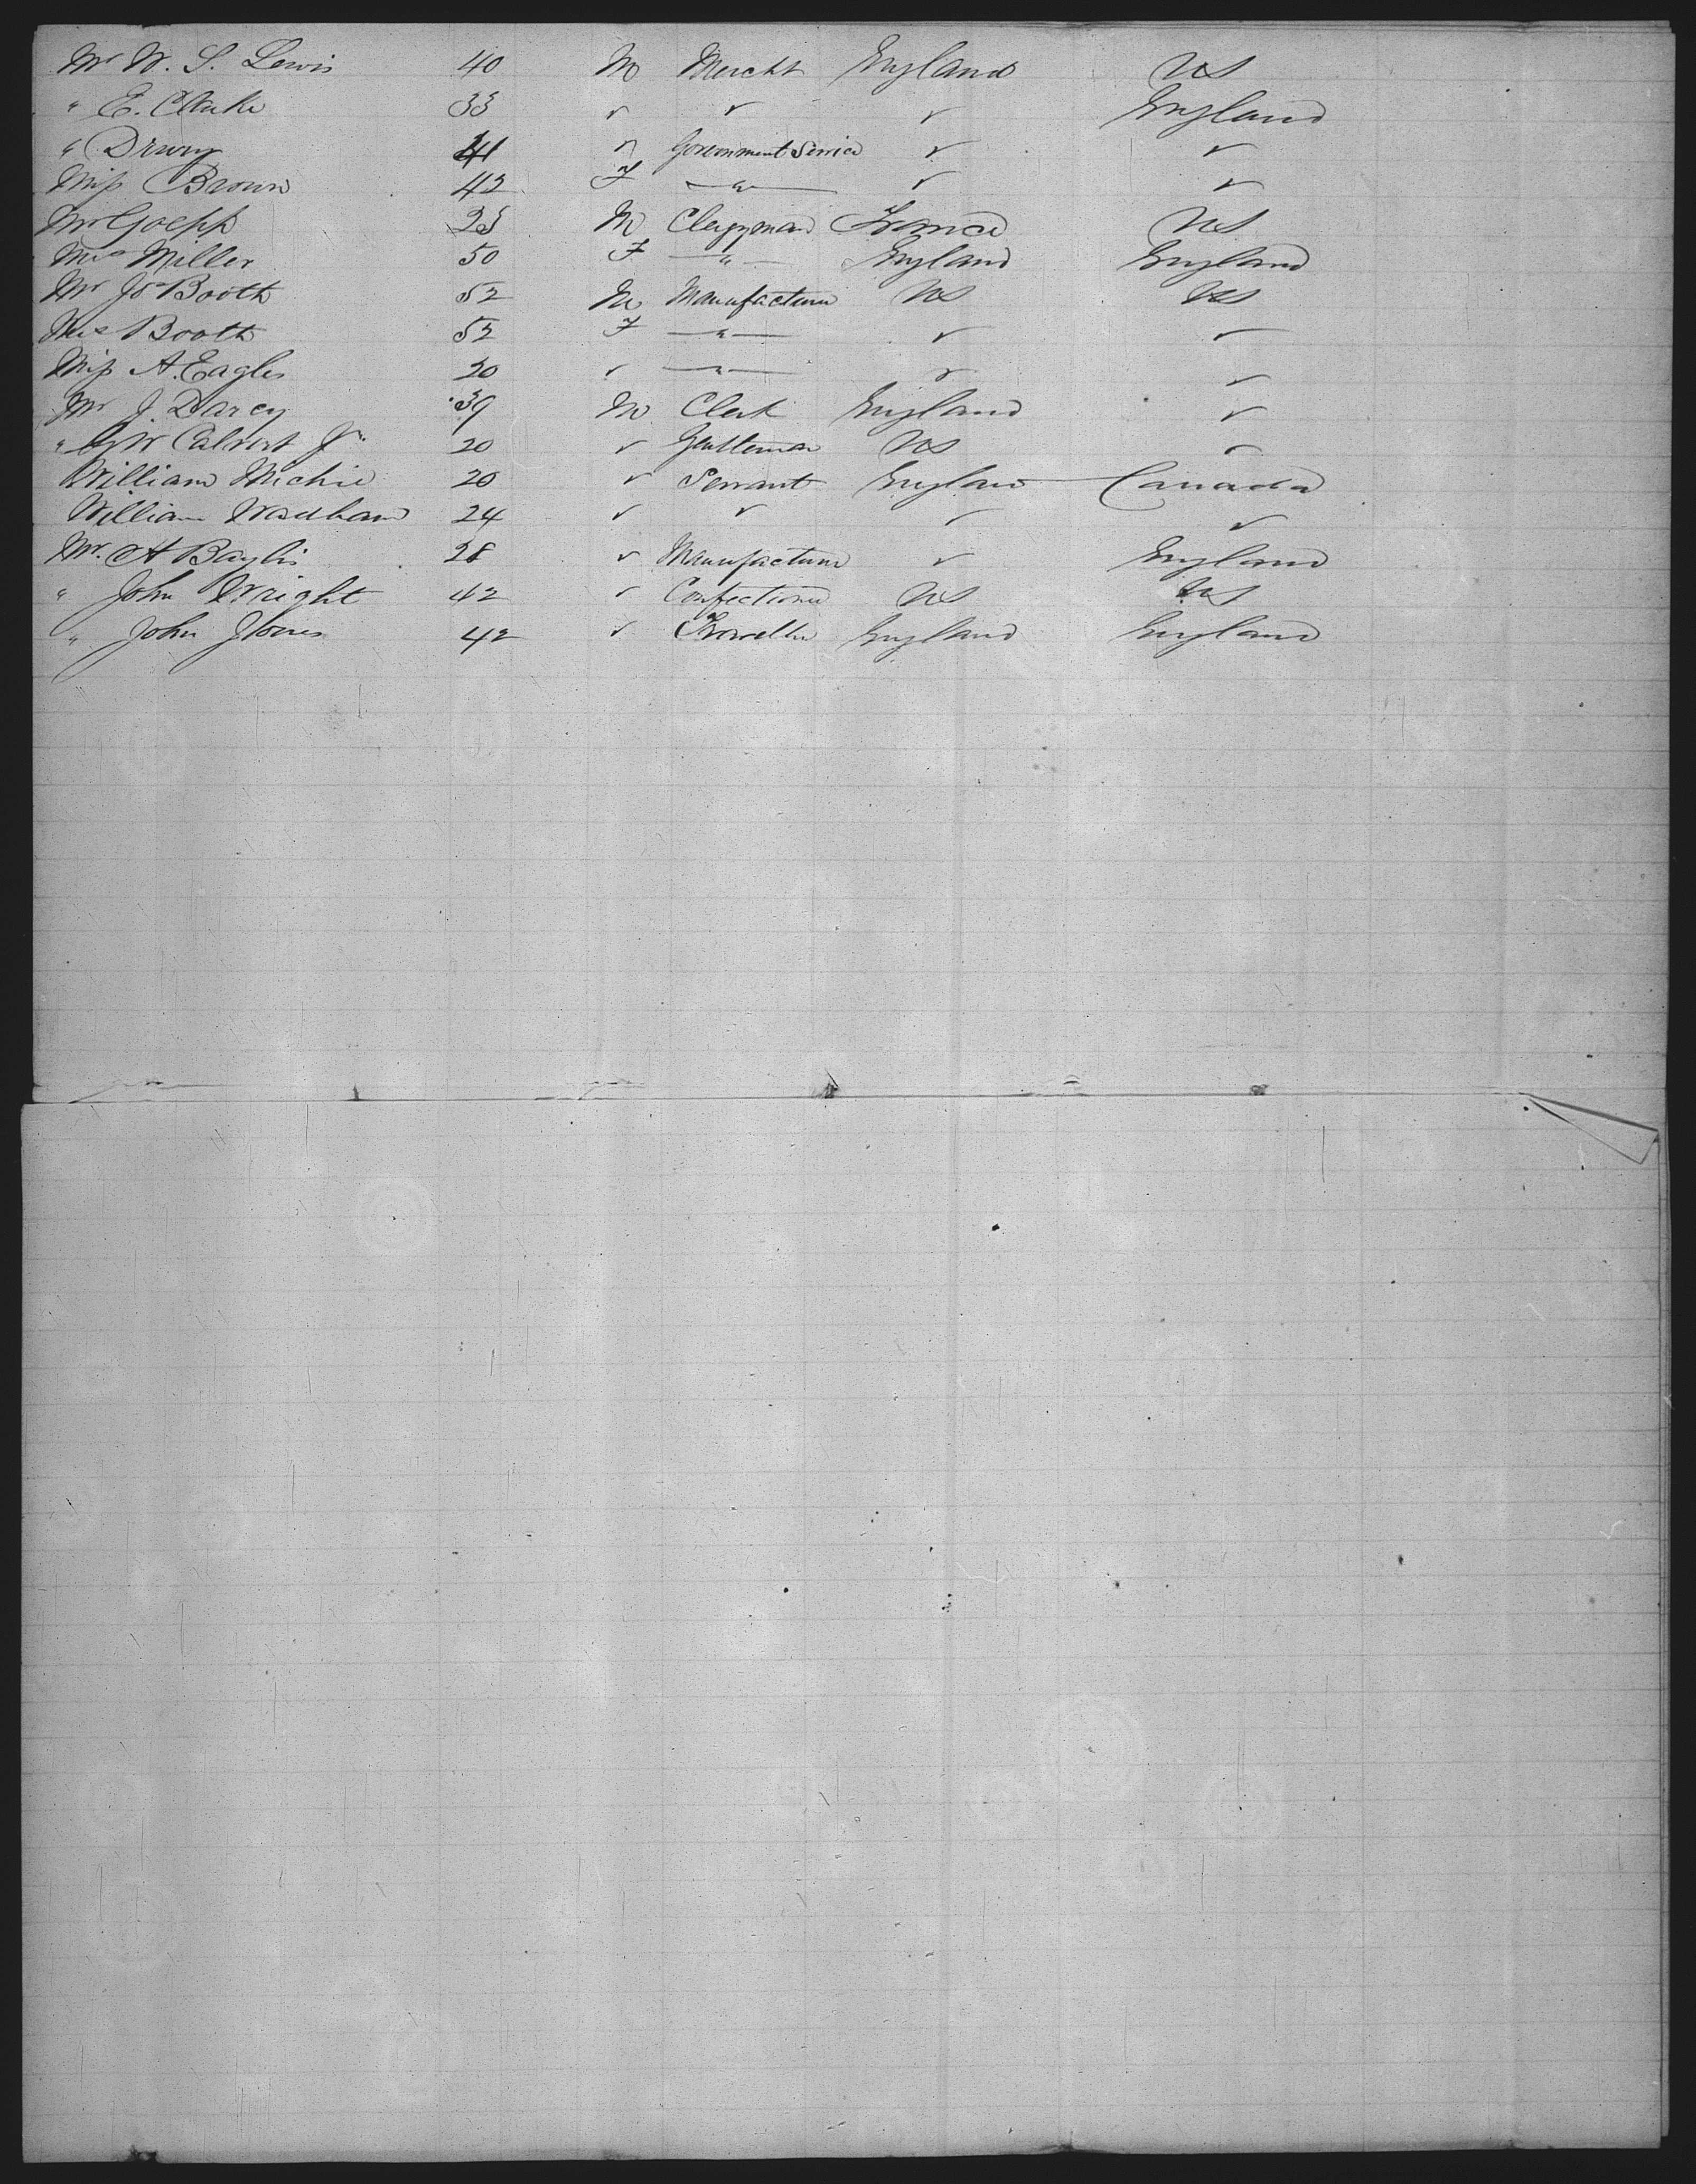 Mr W. S. Lewis 40 M Mercht England US
" E. Clarke 33 ✓ ✓ ✓ England
" Drury 41 ✓ Government Service ✓ ✓
Miss Brown 42 F —"— ✓ ✓
Mr Goepp 28 M Clergyman France US
Mrs Miller 50 F —"— England England
Mr Js Booth 52 M Manufacturer US US
Mrs Booth 52 F —"— ✓ ✓
Miss A. Eagles 20 ✓ —"— ✓ ✓
Mr J. Darcy 39 M Clerk England ✓
" G W Calvert Jr 20 ✓ Gentleman US ✓
William Michie 20 ✓ Servant England Canada
William Wadham 24 ✓ ✓ ✓ ✓
Mr. A Baylis 28 ✓ Manufacturer ✓ England
" John Wright 42 ✓ Confectioner US US
" John Jones 42 ✓ Traveller England England